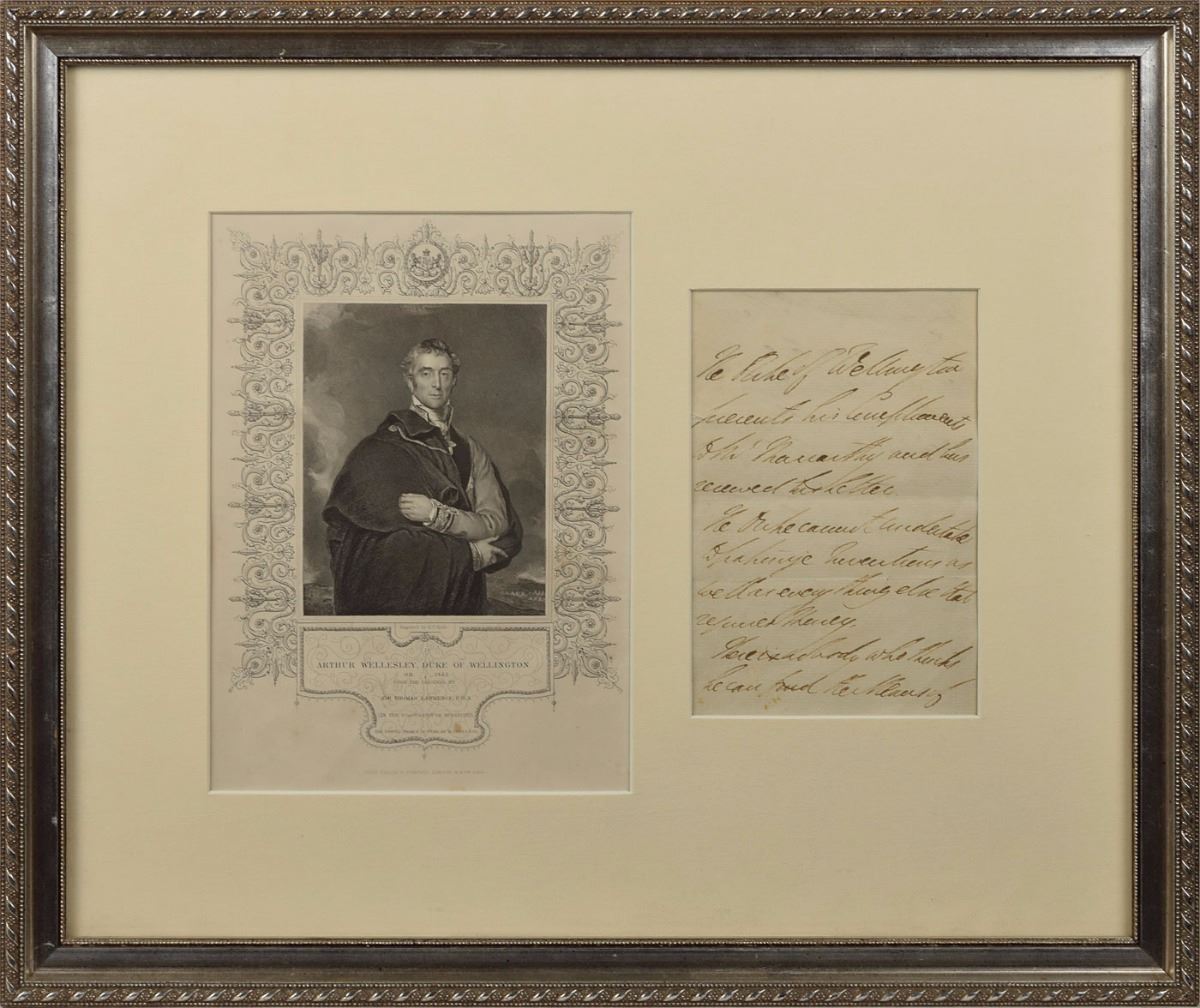 Engraved by
ARTHUR WELLESLEY, DUKE OF WELLINGTON
FROM THE ORIGINAL BY
SIR THOMAS LAWRENCE, P.R.A.
IN THE
The Duke of Wellington
presents his Compliments
to Mr Macarthy and has
received his Letter.
The Duke cannot undertake
to patronize Inventions as
well as every thing else that
requires Money.
There is nobody who thinks
he can find the Means of